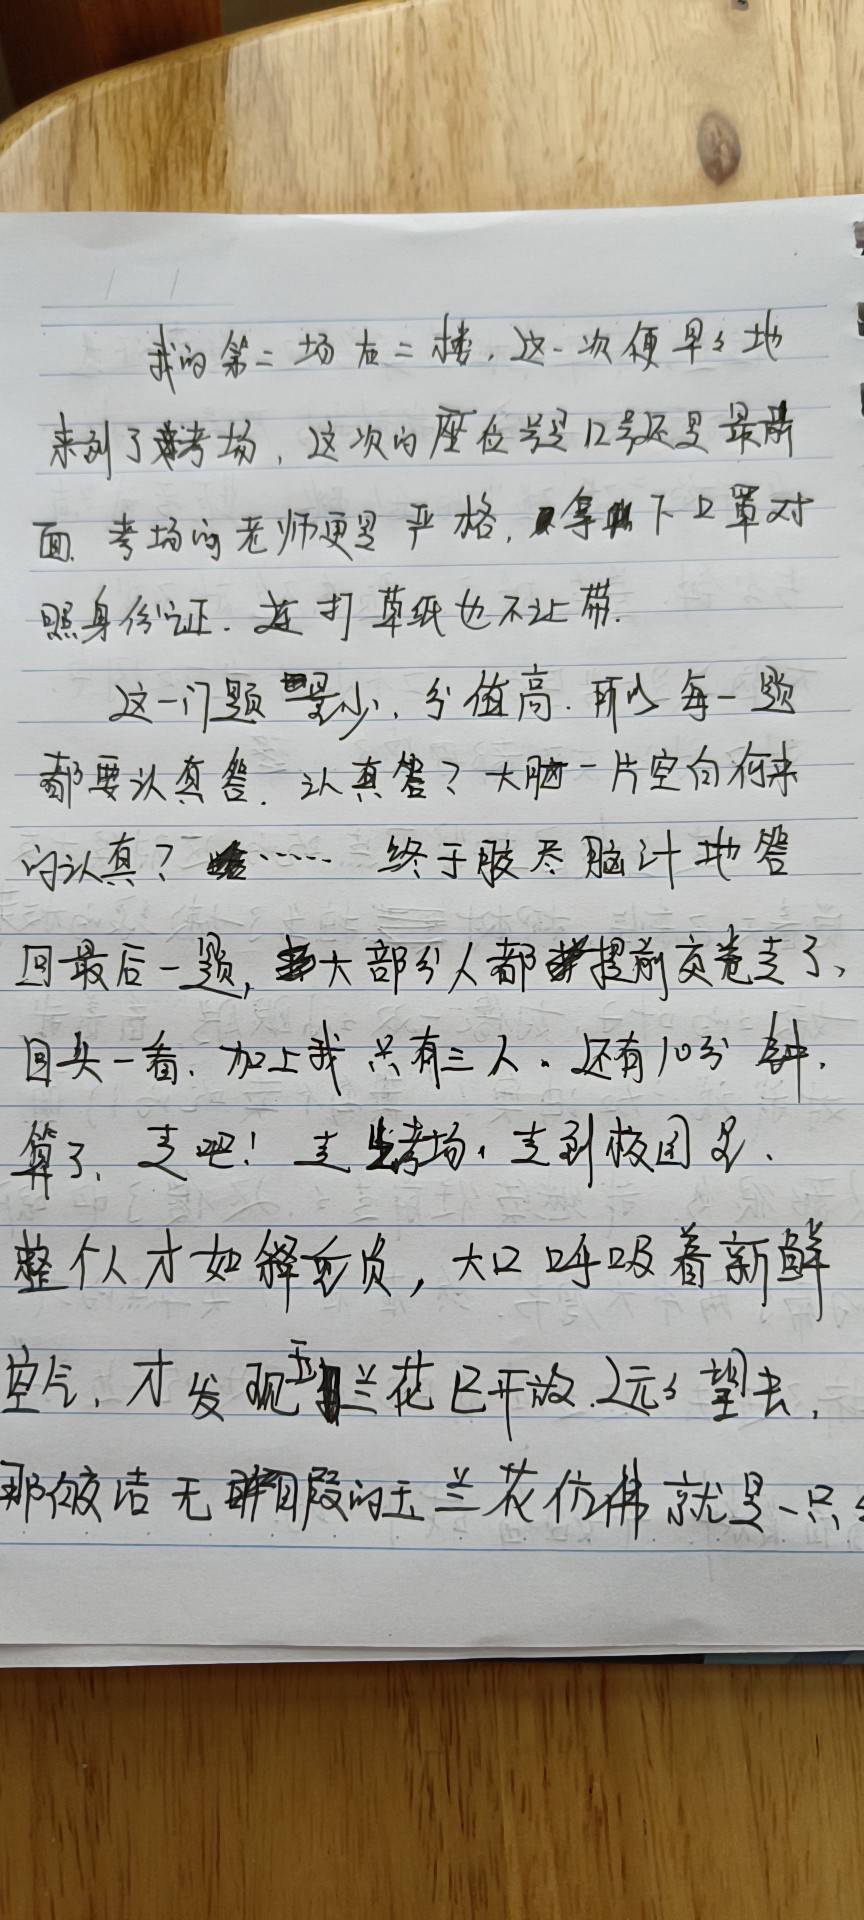 我的第二场在二楼，这一次便早々地
来到了考场，这次的座位号是12号还是最前
面，考场的老师更是严格，拿下口罩对
照身份证．连打草纸也不让带．
这一门题量少，分值高．所以每一题
都要认真答．认真答？大脑一片空白何来
的认真？…… 终于胶尽脑汁地答
回最后一题，大部分人都提前交卷走了，
回头一看，加上我只有三人。还有10分钟．
算了，走吧！走出考场，走到校园里．
整个人才如释重负，大口呼吸着新鲜
空气，才发现玉兰花已开放．远々望去，
那皎洁无瑕的玉兰花仿佛就是一只